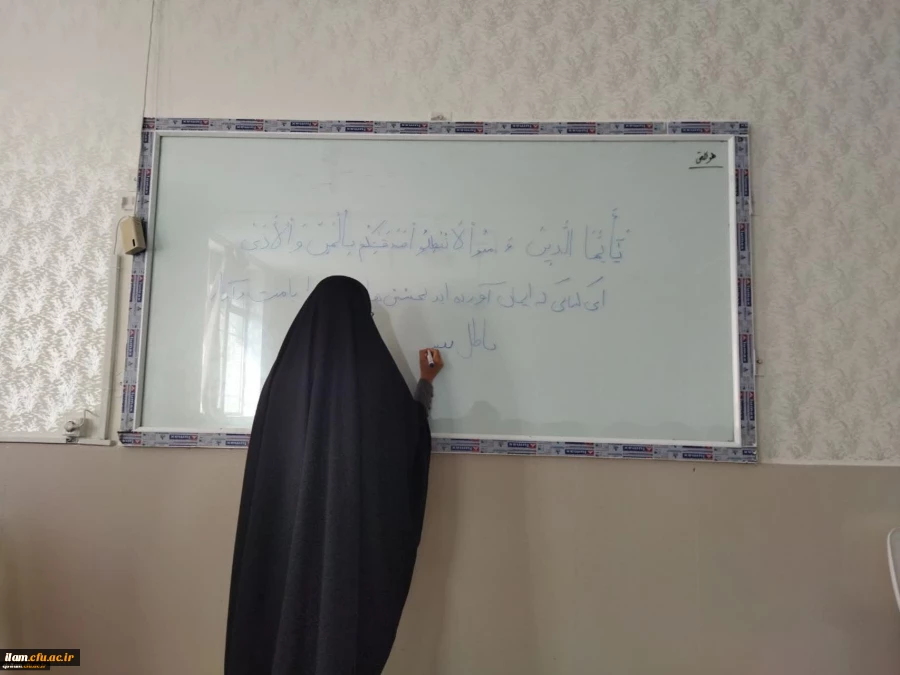 هوالحق
يَٰٓأَيُّهَا الَّذِينَ ءَامَنُوا۟ لَا تُبْطِلُوا۟ صَدَقَٰتِكُم بِالْمَنِّ وَالْأَذَىٰ
ای کسانی که ایمان آورده اید بخشش با منت و آزار
باطل
ilam.cfu.ac.ir